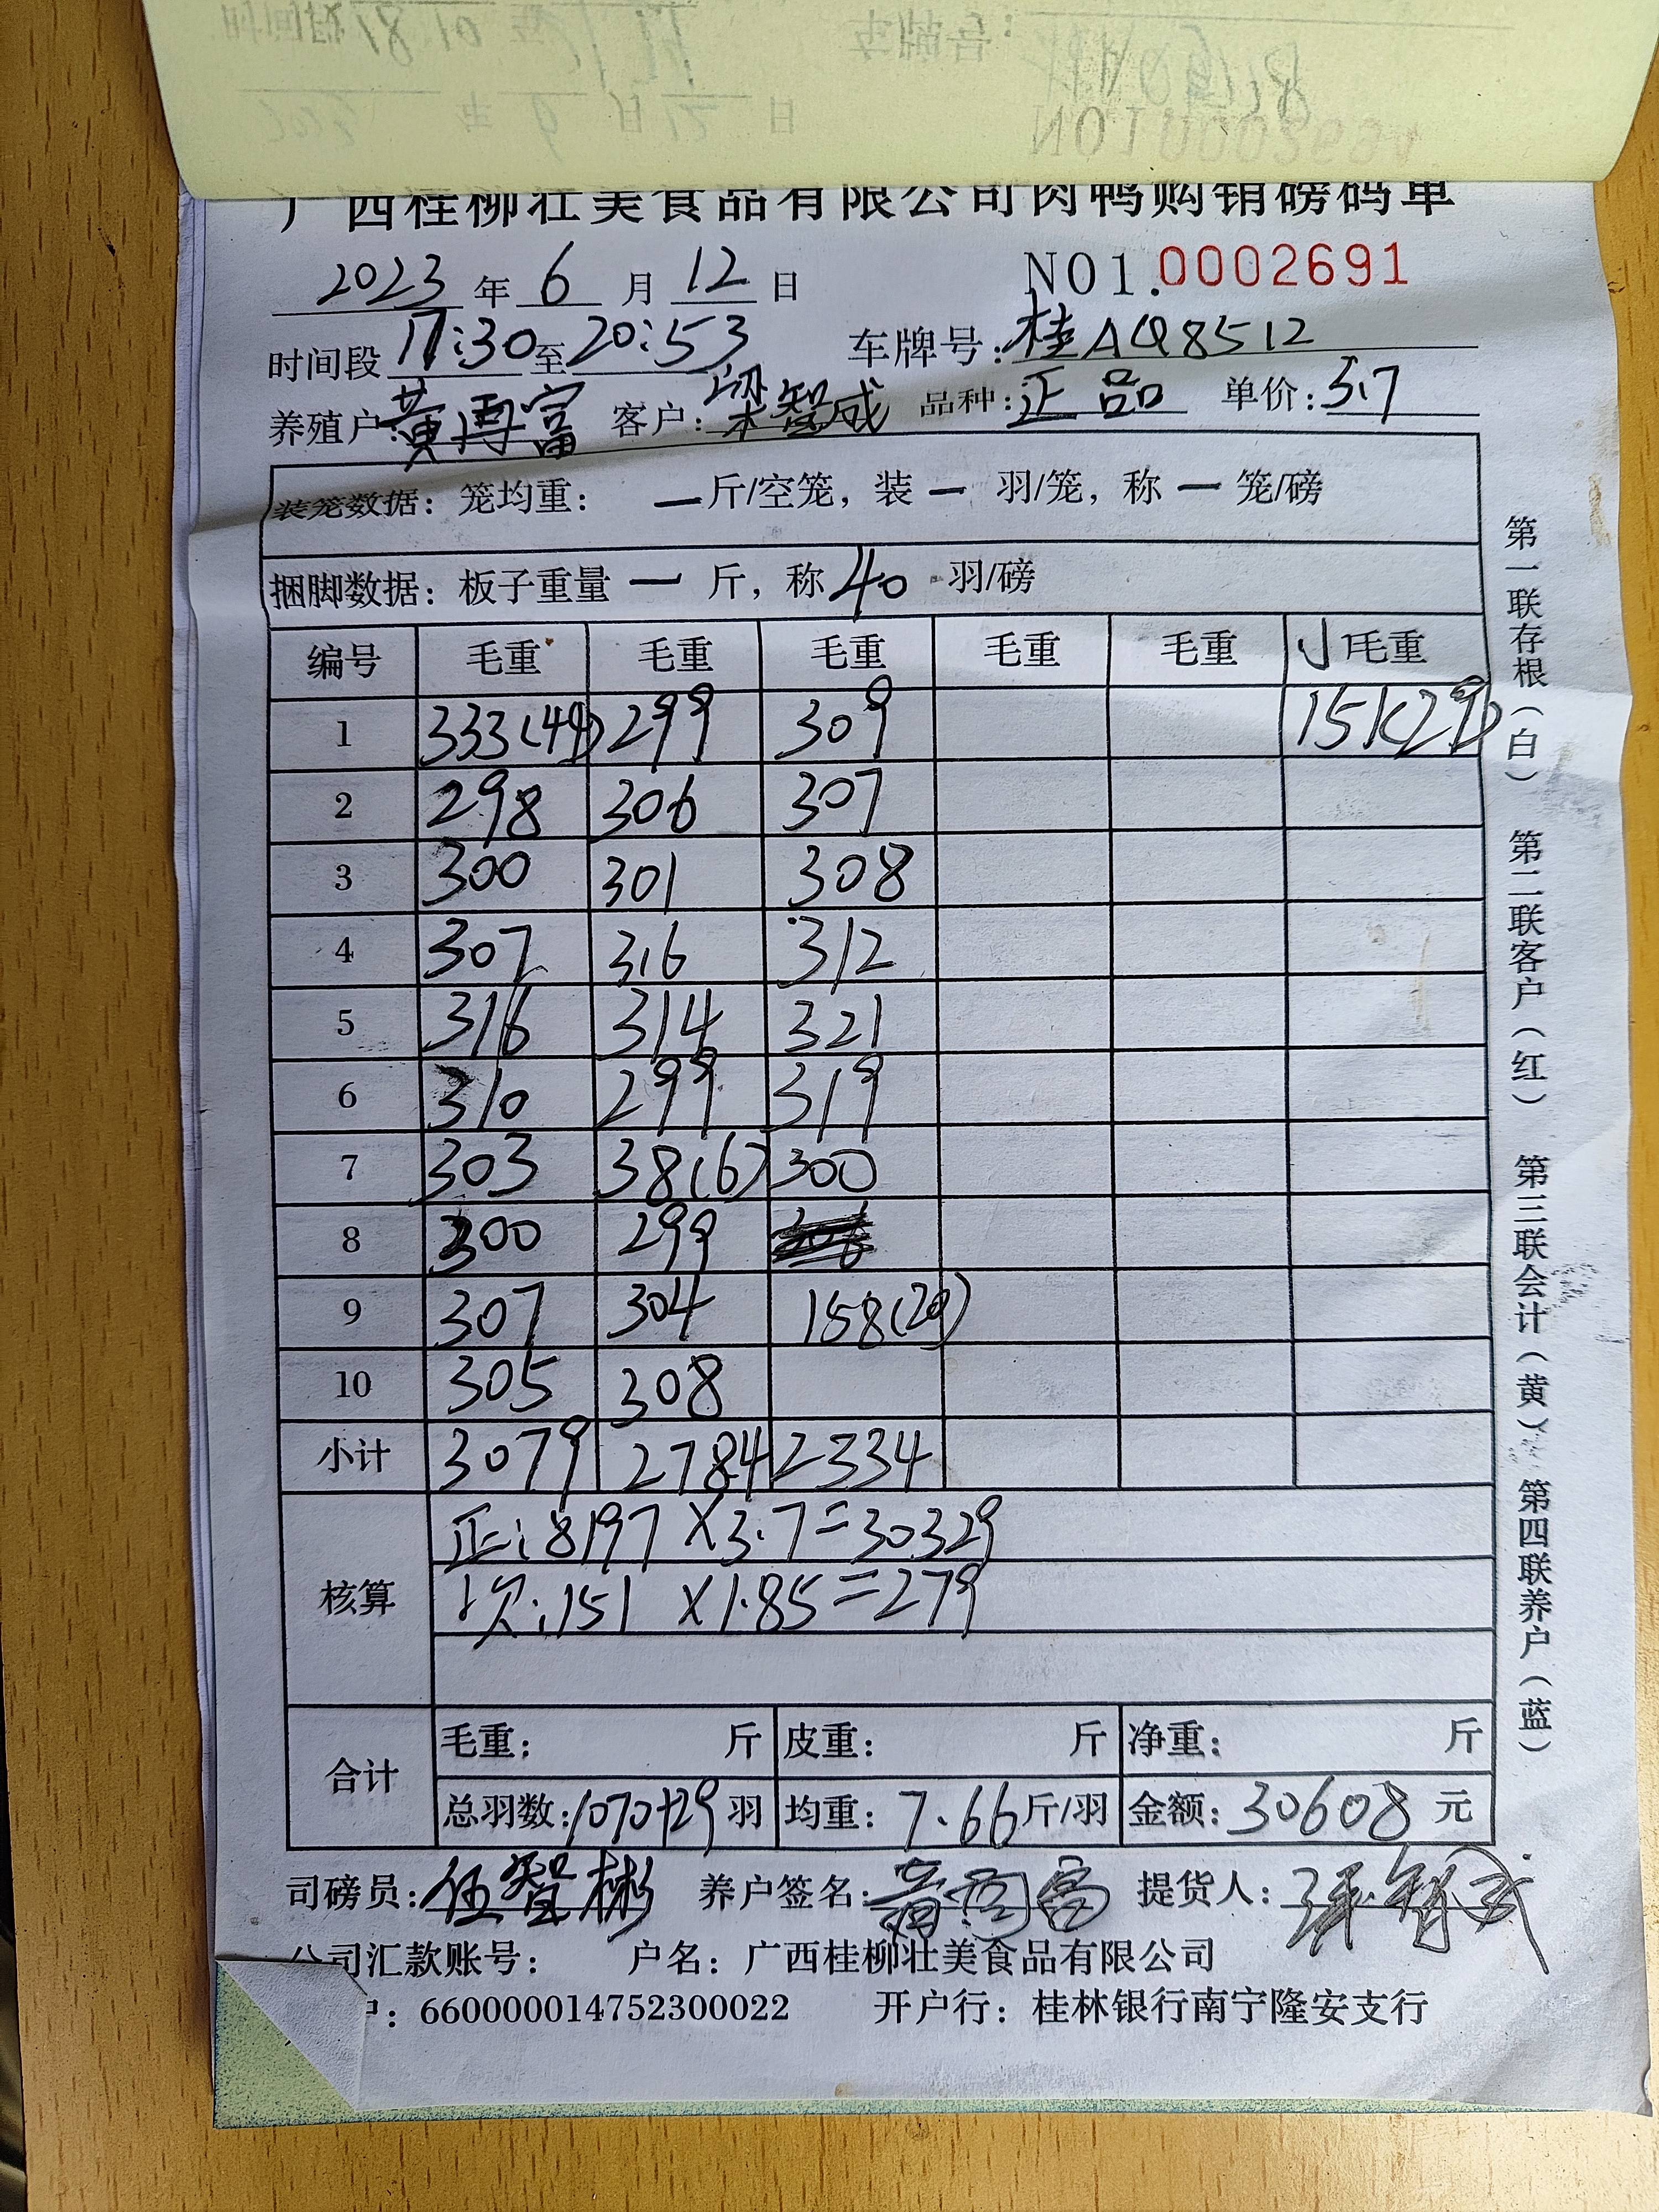 广西桂柳壮美食品有限公司肉鸭购销磅码单
2023 年 6 月 12 日 NO1.0002691
时间段 17:30 至 20:53 车牌号: 桂AQ8512
养殖户: 黄再富 客户: 梁智成 品种: 正品 单价: 3.7
装笼数据: 笼均重: 一 斤/空笼, 装 一 羽/笼, 称 一 笼/磅
捆脚数据: 板子重量 一 斤, 称 40 羽/磅
编号 毛重 毛重 毛重 毛重 毛重 小毛重
1 333(44) 299 309 151(29)
2 298 306 307
3 300 301 308
4 307 316 312
5 316 314 321
6 310 299 319
7 303 38(6) 300
8 300 299
9 307 304 158(20)
10 305 308
小计 3079 2784 2334
核算
正: 8197 ×3.7=30329
次: 151 ×1.85=279
合计
毛重: 斤 皮重: 斤 净重: 斤
总羽数: 1070+29 羽 均重: 7.66 斤/羽 金额: 30608 元
司磅员: 伍智彬 养户签名: 提货人:
公司汇款账号: 户名: 广西桂柳壮美食品有限公司
: 660000014752300022 开户行: 桂林银行南宁隆安支行
第一联存根(白) 第二联客户(红) 第三联会计(黄) 第四联养户(蓝)